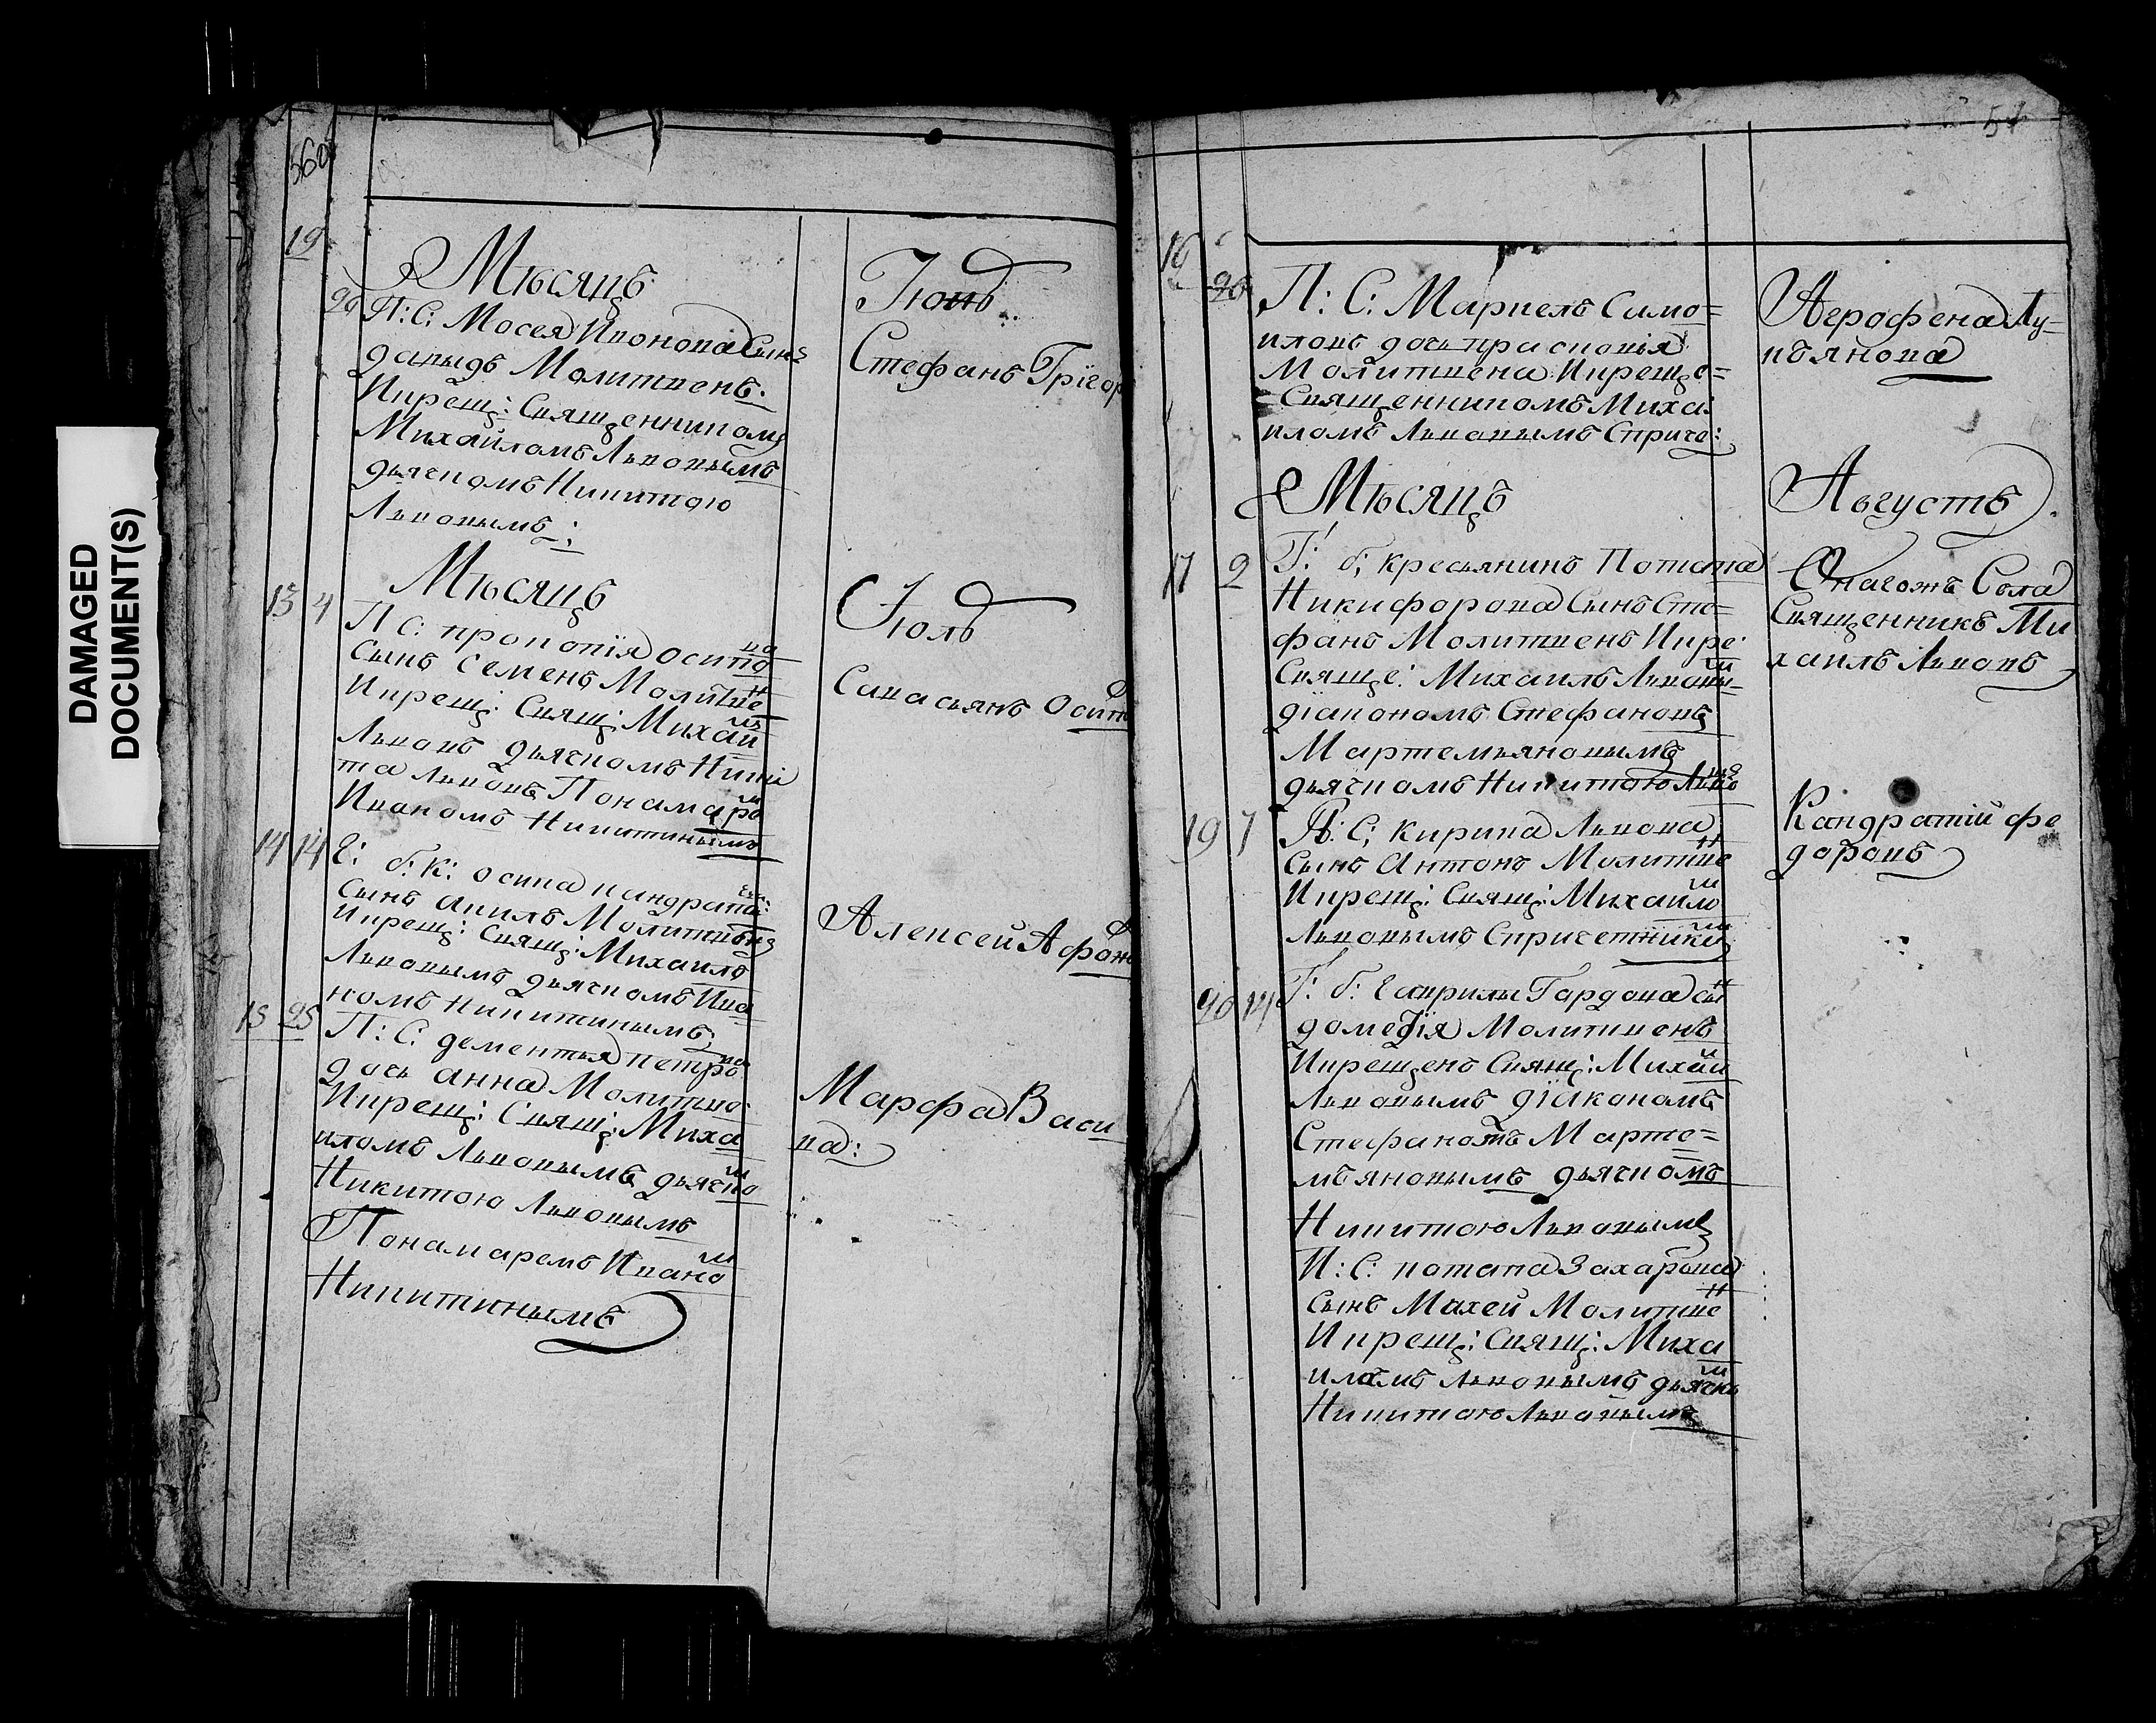 DAMAGED
DOCUMENT(S)
360
19
Мѣсяцъ
Іюнь
26 П: С: Мосея Ивонова Сынъ
давыдъ Молитвенъ.
Икрещ: Священникомъ
Михайломъ Львовымъ
дьячкомъ Никитою
Львовымъ:
Стефанъ Грїгор
Мѣсяцъ
Іюль
13 4 П С: прокопїя осипова
сынъ Семенъ Молитвен
Икрещ: Свящ: Михаил
Львовъ дьячкомъ Ники
та Львовъ Понамаром
Иваномъ Никитинымъ
Савасьянъ Осип
14 14 Г: б: К: осипа кандратье:
сынъ акилъ Молитвенъ
Икрещ: Свящ: Михаилъ
Львовымъ дьячкомъ Ива
номъ Никитинымъ
Алексей Афон
15 25 П: С: дементья петрова
дочь анна Молитво
Икрещ: Свящ: Миха
иломъ Львовымъ дьячком
Никитою Львовымъ
Понамаремъ Иваном
Никитинымъ
Марфа Васи
ва:
16 26 П: С: Маркелъ Само=
иловъ дочь прасковія
Молитвена Икреще=
Священникомъ Михаи
иломъ Львовымъ Сприче:
Агрофена Лу=
кьянова
Мѣсяцъ
Августъ.
17 2 Г: б; кресьянинъ Потапа
Никифорова Сынъ Сте=
фанъ Молитвенъ Икре:
Свяще: Михаилъ Львовы
діакономъ Стефановъ
Мартемьяновымъ
дьячкомъ Никитою Львов
Онагожъ Села
Священникъ Ми
хаилъ Львовъ
19 7 П: С; кирила Львова
сынъ Антонъ Молитвен
Икрещ: Свящ: Михаилом
Львовымъ Спричетники
Кандратій фе
доровъ
20 14 Г: б: Гаврилы Гордова сын
домеѳїя Молитвенъ
Икрещенъ Свящ: Михаи
Львовымъ дїакономъ
Стефаномъ Марте=
мьяновымъ дьячкомъ
Никитою Львовымъ
П: С: потапа Захарова
Сынъ Махей Молитвен
Икрещ: Свящ: Миха
иломъ Львовымъ дьячком
Никитою Львовымъ